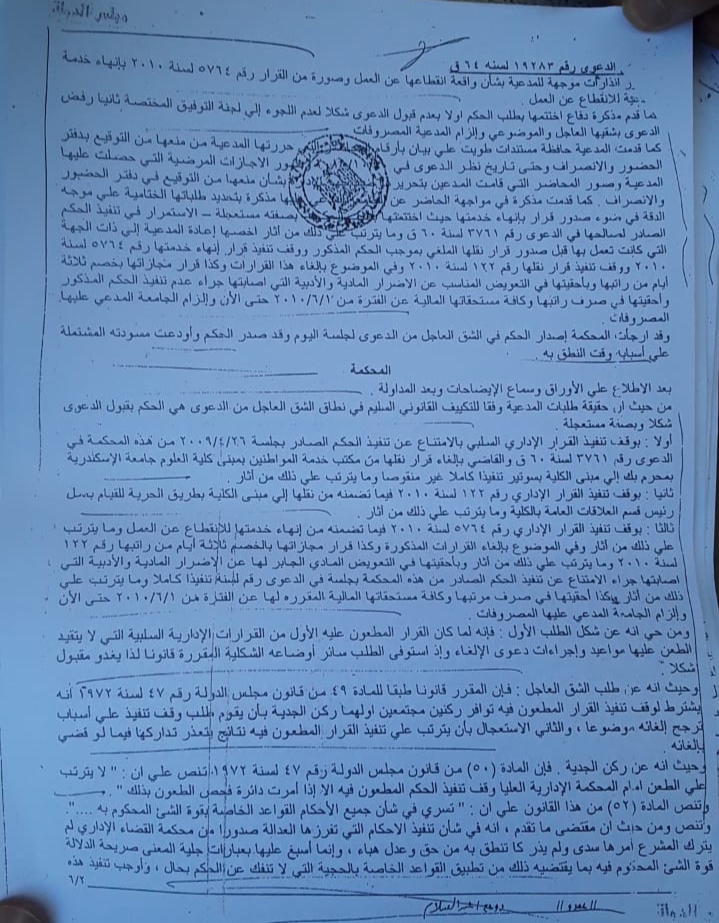 مجلس الدولة
الدعوى رقم ١٩٢٨٣ لسنه ٦٤ ق
انذارات موجهة للمدعية بشأن واقعة انقطاعها عن العمل وصورة من القرار رقم ٥٧٦٤ لسنة ٢٠١٠ بإنهاء خدمة
للانقطاع عن العمل .
كما قدم مذكرة دفاع اختتمها بطلب الحكم اولا بعدم قبول الدعوى شكلا لعدم اللجوء إلي لجنة التوفيق المختصة ثانيا رفض
الدعوى بشقيها العاجل والموضوعي وإلزام المدعية المصروفات
كما قدمت المدعية حافظة مستندات طويت علي بيان بأرقام حررتها المدعية من منعها من التوقيع بدفتر
الحضور والانصراف وحتى تاريخ نظر الدعوى في صور الاجازات المرضية التي حصلت عليها
المدعية وصور المحاضر التي قامت المدعين بتحرير بشأن منعها من التوقيع في دفتر الحضور
والانصراف . كما قدمت مذكرة في مواجهة الحاضر عن بها مذكرة بتحديد طلباتها الختامية علي موجه
الدقة في ضوء صدور قرار بإنهاء خدمتها حيث اختتمتها بصفته مستعجلة – الاستمرار في تنفيذ الحكم
الصادر لصالحها في الدعوى رقم ٣٧٦١ لسنة ٦٠ ق وما يترتب علي ذلك من آثار اخصبها إعادة المدعية إلي ذات الجهة
التي كانت تعمل بها قبل صدور قرار نقلها الملغي بموجب الحكم المذكور ووقف تنفيذ قرار إنهاء خدمتها رقم ٥٧٦٤ لسنة
٢٠١٠ ووقف تنفيذ قرار نقلها رقم ١٢٢ لسنة ٢٠١٠ وفي الموضوع بإلغاء هذا القرارات وكذا قرار مجازاتها بخصم ثلاثة
أيام من راتبها وبأحقيتها في التعويض المناسب عن الاضرار المادية والأدبية التي اصابتها جراء عدم تنفيذ الحكم المذكور
وأحقيتها في صرف راتبها وكافة مستحقاتها المالية عن الفترة من ٢٠١٠/٦/١ حتى الأن وإلزام الجامعة المدعي عليها
المصروفات .
وقد ارجأت المحكمة إصدار الحكم في الشق العاجل من الدعوى لجلسة اليوم وقد صدر الحكم وأودعت مسودته المشتملة
علي أسبابه وقت النطق به .
المحكمة
بعد الاطلاع علي الأوراق وسماع الإيضاحات وبعد المداولة .
من حيث ان حقيقة طلبات المدعية وفقا للتكييف القانوني السليم في نطاق الشق العاجل من الدعوى هي الحكم بقبول الدعوى
شكلا وبصفة مستعجلة .
أولا : بوقف تنفيذ القرار الإداري السلبي بالامتناع عن تنفيذ الحكم الصادر بجلسة ٢٠٠٩/٤/٢٦ من هذه المحكمة في
الدعوى رقم ٣٧٦١ لسنة ٦٠ ق والقاضي بإلغاء قرار نقلها من مكتب خدمة المواطنين بمبنى كلية العلوم جامعة الإسكندرية
بمحرم بك إلي مبنى الكلية بسوتير تنفيذا كاملا غير منقوصا وما يترتب علي ذلك من آثار .
ثانيا : بوقف تنفيذ القرار الإداري رقم ١٢٢ لسنة ٢٠١٠ فيما تضمنه من نقلها إلي مبنى الكلية بطريق الحرية للقيام بعمل
رئيس قسم العلاقات العامة بالكلية وما يترتب علي ذلك من آثار .
ثالثا : بوقف تنفيذ القرار الإداري رقم ٥٧٦٤ لسنة ٢٠١٠ فيما تضمنه من إنهاء خدمتها للإنقطاع عن العمل وما يترتب
علي ذلك من آثار وفي الموضوع بإلغاء القرارات المذكورة وكذا قرار مجازاتها بالخصم ثلاثة أيام من راتبها رقم ١٢٢
لسنة ٢٠١٠ وما يترتب علي ذلك من آثار وبأحقيتها في التعويض المادي الجابر لها عن الإضرار المادية والأدبية التي
اصابتها جراء الامتناع عن تنفيذ الحكم الصادر من هذه المحكمة بجلسة في الدعوى رقم لسنة تنفيذا كاملا وما يترتب علي
ذلك من آثار وكذا أحقيتها في صرف مرتبها وكافة مستحقاتها المالية المقرره لها عن الفترة من ٢٠١٠/٦/١ حتى الأن
وإلزام الجامعة المدعي عليها المصروفات .
ومن حي انه عن شكل الطلب الأول : فإنه لما كان القرار المطعون عليه الأول من القرارات الإدارية السلبية التي لا يتقيد
الطعن عليها مواعيد وإجراءات دعوى الإلغاء وإذ استوفى الطلب سائر أوضاعه الشكلية المقررة قانونا لذا يغدو مقبول
شكلا .
وحيث انه عن طلب الشق العاجل : فإن المقرر قانونا طبقا للمادة ٤٩ من قانون مجلس الدولة رقم ٤٧ لسنة ١٩٧٢ أنه
يشترط لوقف تنفيذ القرار المطعون فيه توافر ركنين مجتمعين اولهما ركن الجدية بأن يقوم طلب وقف تنفيذ علي أسباب
ترجح إلغائه موضوعا ، والثاني الاستعجال بأن يترتب علي تنفيذ القرار المطعون فيه نتائج يتعذر تداركها فيما لو قضي
بإلغائه
وحيث انه عن ركن الجدية . فإن المادة (٥٠) من قانون مجلس الدولة رقم ٤٧ لسنة ١٩٧٢ تنص علي ان : " لا يترتب
علي الطعن امام المحكمة الإدارية العليا وقف تنفيذ الحكم المطعون فيه الا إذا أمرت دائرة فحص الطعون بذلك " .
وتنص المادة (٥٢) من هذا القانون علي ان : " تسري في شأن جميع الأحكام القواعد الخاصة بقوة الشئ المحكوم به ....".
وتنص ومن حيث ان مقتضى ما تقدم ، انه في شأن تنفيذ الاحكام التي تفرزها العدالة صدورا من محكمة القضاء الإداري لم
يترك المشرع أمرها سدى ولم يذر كا تنطق به من حق وعدل هباء ، وإنما أسبغ عليها بعبارات جلية المعنى صريحة الدلالة
قوة الشئ المحكوم فيه بما يقتضيه ذلك من تطبيق القواعد الخاصة بالحجية التي لا تنفك عن الحكم بحال ، وأوجب تنفيذ هذه
٦/٢